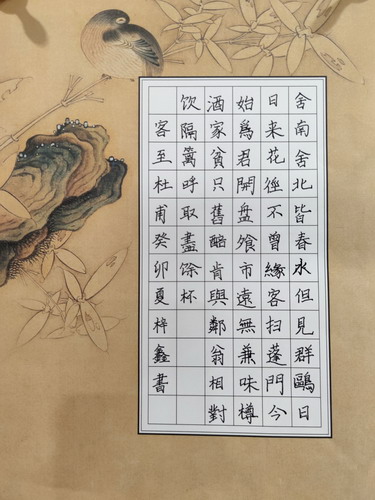 舍南舍北皆春水但見群鷗日
日来花徑不曾緣客扫蓬門今
始爲君開盘飧市遠無兼味樽
酒家貧只舊醅肯與鄰翁相對
饮隔篱呼取盡馀杯
客至杜甫癸卯夏梓鑫書